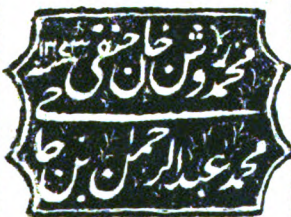 محمد روشن خان حنفی سنه ١٢٣٣
محمد عبدالرحمن بن حاجی